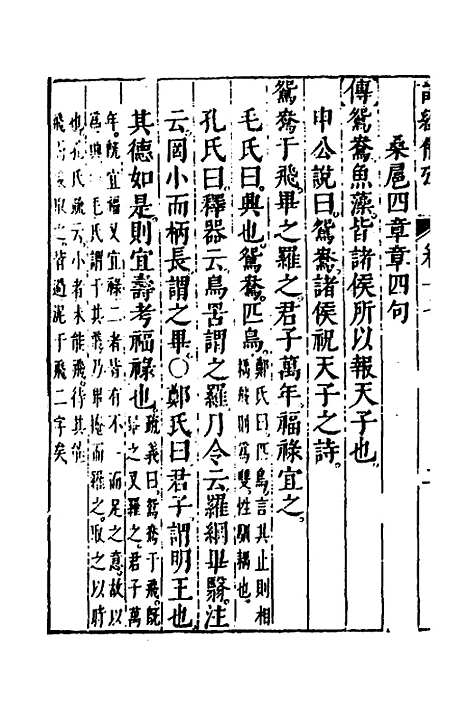 桑扈四章章四句
傳鴛鴦魚藻皆諸侯所以報天子也
申公說曰鴛鴦諸侯祝天子之詩
鴛鴦于飛畢之羅之君子萬年福祿宜之
毛氏曰興也鴛鴦匹鳥
鄭氏曰匹鳥言其止則相
耦飛則爲雙性馴耦也
孔氏曰釋器云鳥罟謂之羅月令云羅網畢翳注
云罔小而柄長謂之畢○鄭氏曰君子謂明王也
其德如是則宜壽考福祿也
疏義曰鴛鴦于飛既
畢之又羅之君子萬
年既宜福又宜祿二者皆有不一而足之意故以
爲興 毛氏謂于其飛乃畢掩而羅之取之以時
也孔氏疏云小者未能飛待其能
飛 後取之皆過泥于飛二字矣